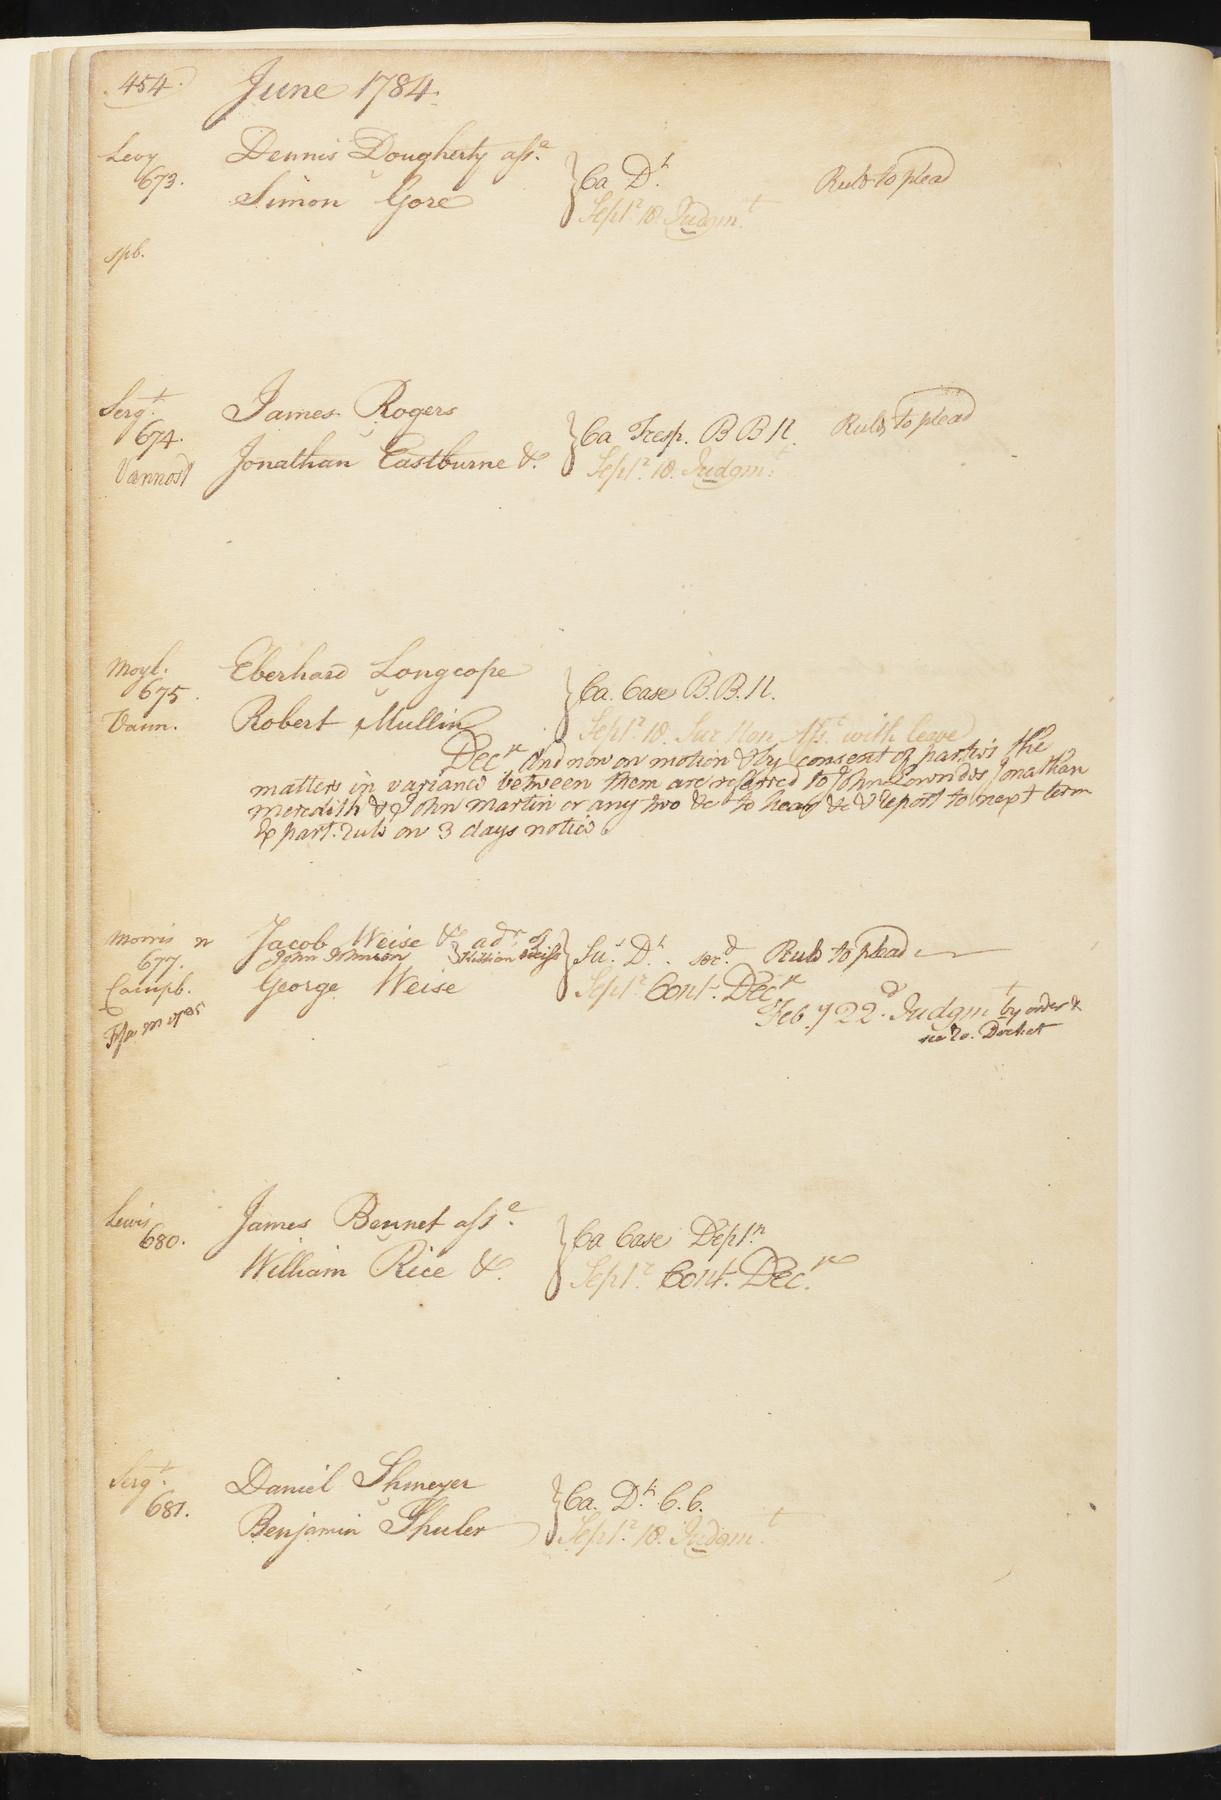 454. June 1784.
Levy Dennis Dougherty ass.e
673. v Ca D.t Rule to plead
Simon Gore Sept.r 18 Judgm.t
spb.
Serg.t James Rogers
674. v Ca Tresp. B B N. Rule to plead
Vannost Jonathan Eastburne &. Sept.r 18. Judgm.t
Moyl. Eberhard Longcope
675. v Ca. Case B.B.N.
Vann. Robert Mullin Sept.r 18. Sur Mon Ass.t with leave
Dec.r And now on motion & by consent of parties the
matters in variance between them are referred to John Lowndes Jonathan
Meredith & John Martin or any two &c to hear &c & report to next term
Ex part. rule on 3 days notice
Morris n Jacob Weise & ad.r of
677. John Johnson Killian Weise Su.s D.t ser.d Rule to plead
Campb. George Weise Sept.r Cont. Dec.r
Feb.y 22.d Judgm.t by order &
see Docket
Lewis James Bennet ass.e
680. v Ca Case Dept.n
William Rice &. Sept.r Cont. Dec.r
Serg.t Daniel Shmeyer
681. v Ca. D.t C.C.
Benjamin Shuler Sept.r 18. Judgm.t